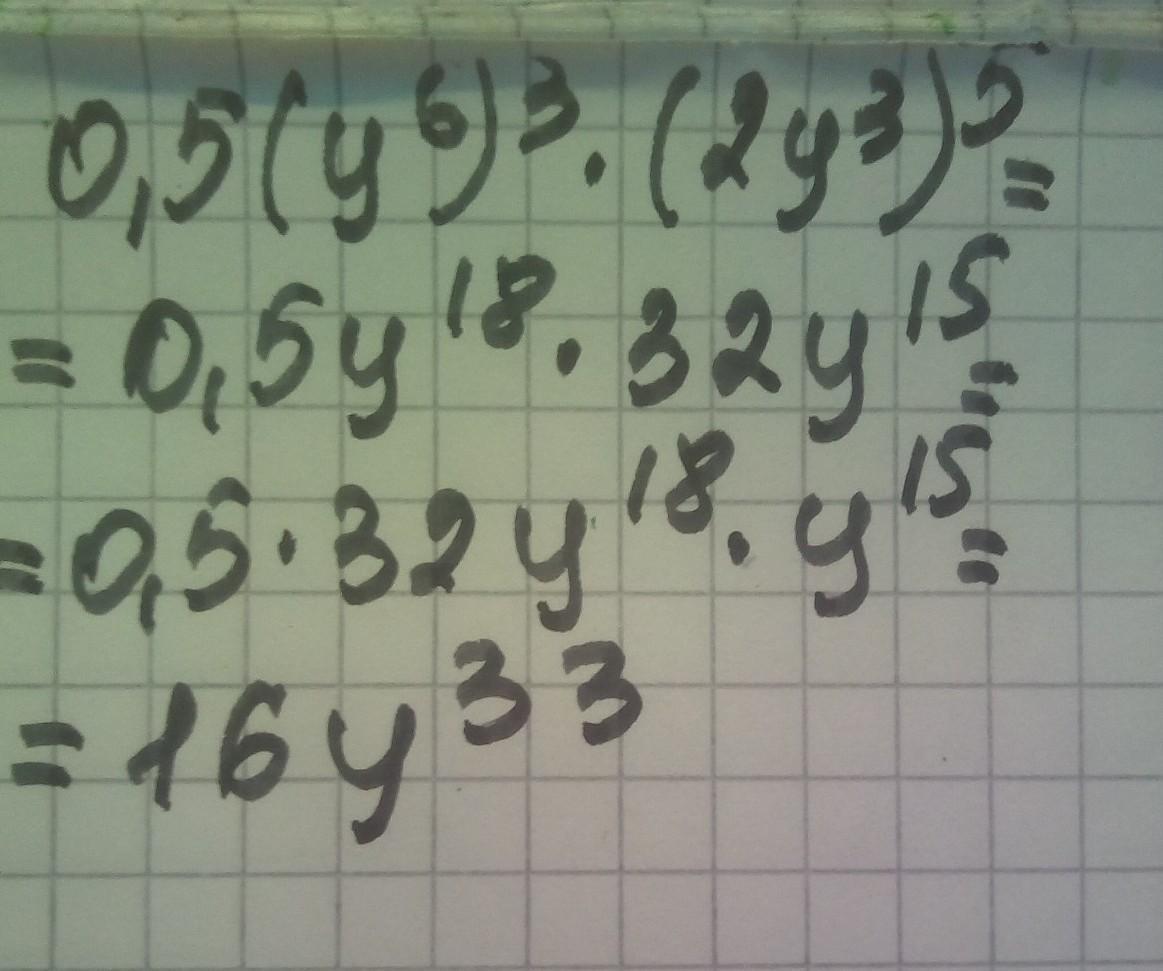 0,5(y⁶)³·(2y³)⁵=
=0,5y¹⁸·32y¹⁵=
=0,5·32y¹⁸·y¹⁵=
=16y³³